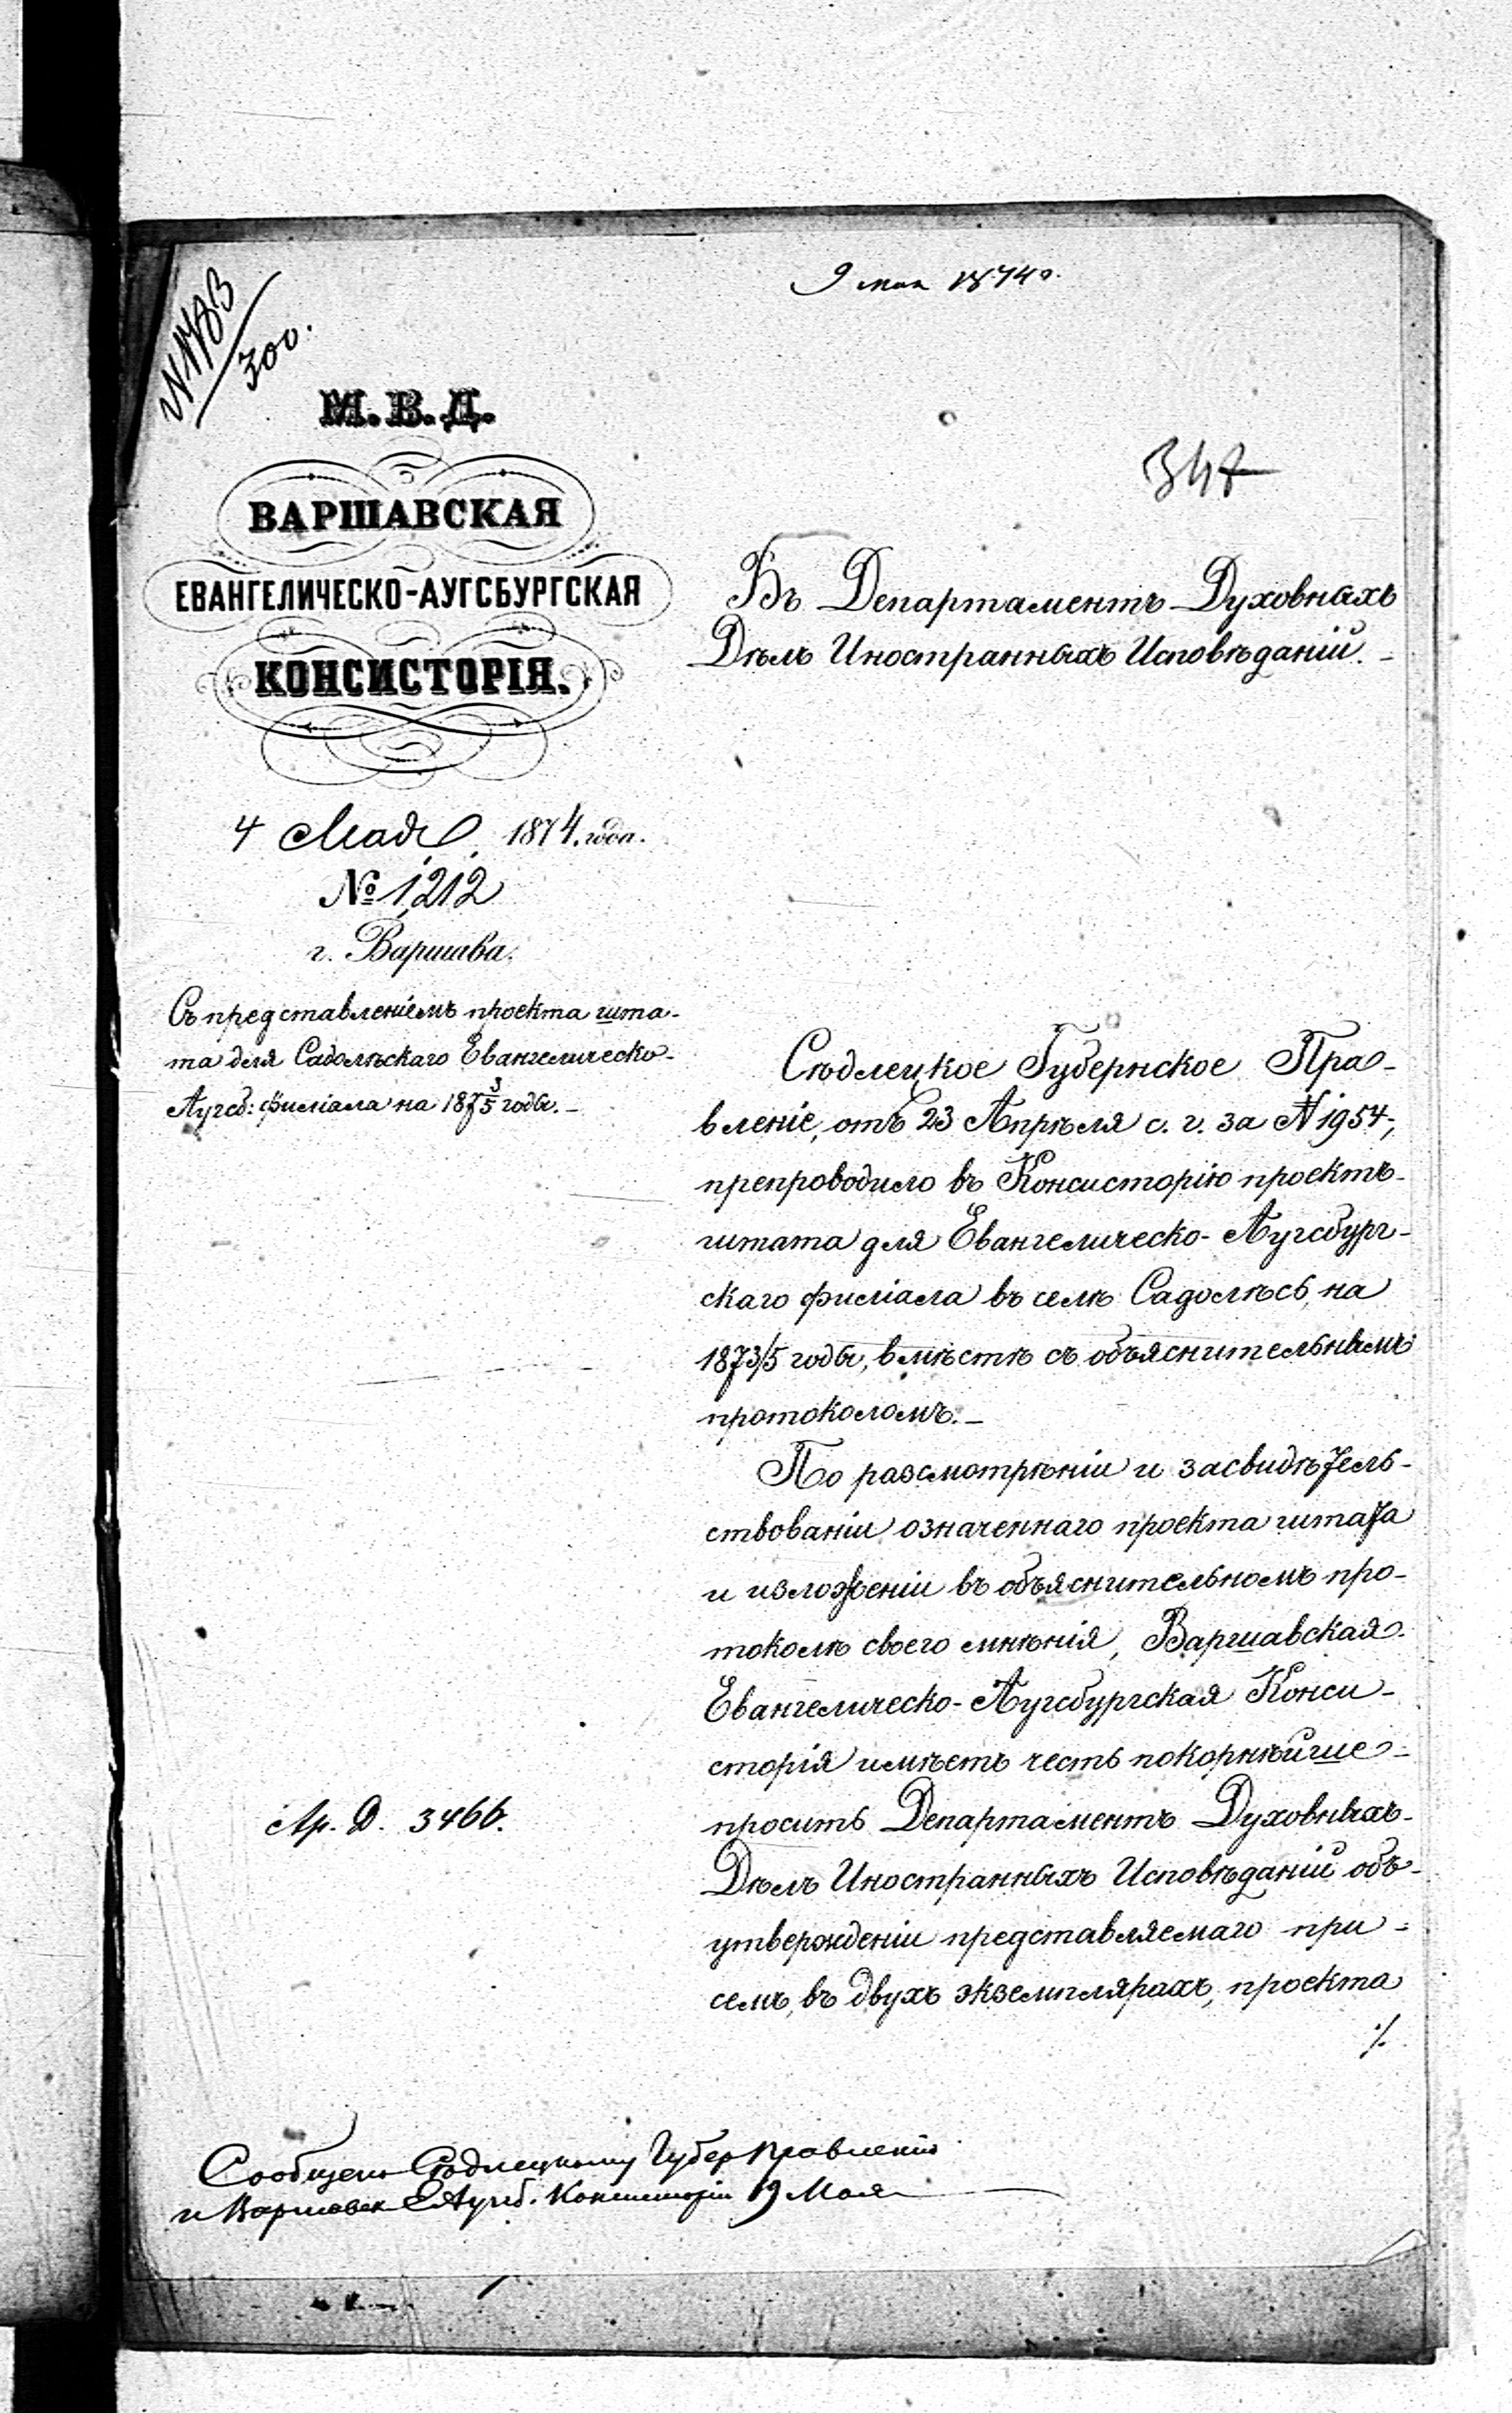 9 мая 1874 г.
№ 1783
300.
М. В. Д.
347
ВАРШАВСКАЯ
ЕВАНГЕЛИЧЕСКО-АУГСБУРГСКАЯ
КОНСИСТОРІЯ.
Въ Департаментъ Духовныхъ
Дѣлъ Иностранныхъ Исповѣданій. –
4 Мая 1874. года.
№ 1,212
г. Варшава.
Съ представленіемъ проекта шта-
та для Садолѣскаго Евангелическо-
Аугсб: филіала на 187 3/5 годы. –
Сѣдлецкое Губернское Пра-
вленіе, отъ 23 Апрѣля с. г. за № 1954,
препроводило въ Консисторію проектъ
штата для Евангелическо-Аугсбург-
скаго филіала въ селѣ Садолѣсь, на
1873/5 годы, вмѣстѣ съ объяснительнымъ
протоколомъ. –
По разсмотрѣніи и засвидѣтель-
ствованіи означеннаго проекта штата
и изложеніи въ объяснительномъ про-
токолѣ своего мнѣнія, Варшавская
Евангелическо-Аугсбургская Конси-
сторія имѣетъ честь покорнѣйше
просить Департаментъ Духовныхъ
Дѣлъ Иностранныхъ Исповѣданій объ
утвержденіи представляемаго при
семъ, въ двухъ экземплярахъ, проекта
./.
Ар. Д. 3466.
Сообщено Сѣдлецкому Губер Правленію
и Варшавск Е Аугсб. Консисторіи 19 Мая